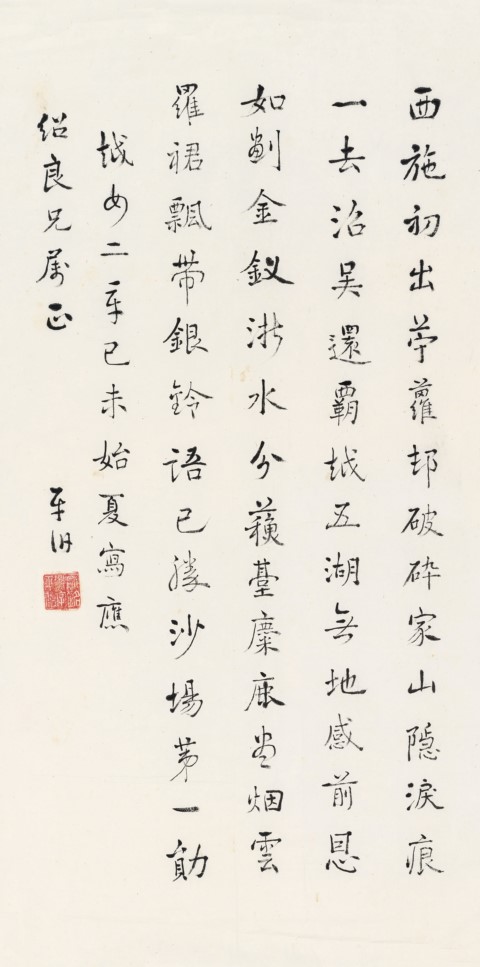 西施初出苧蘿邨破碎家山隱淚痕
一去沼吳還霸越五湖無地感前恩
如劃金釵浙水分蘇臺麋鹿尽烟雲
羅裙飄帶銀鈴語已勝沙場第一勛
越女二章己未始夏寫應
紹良兄屬正 平伯